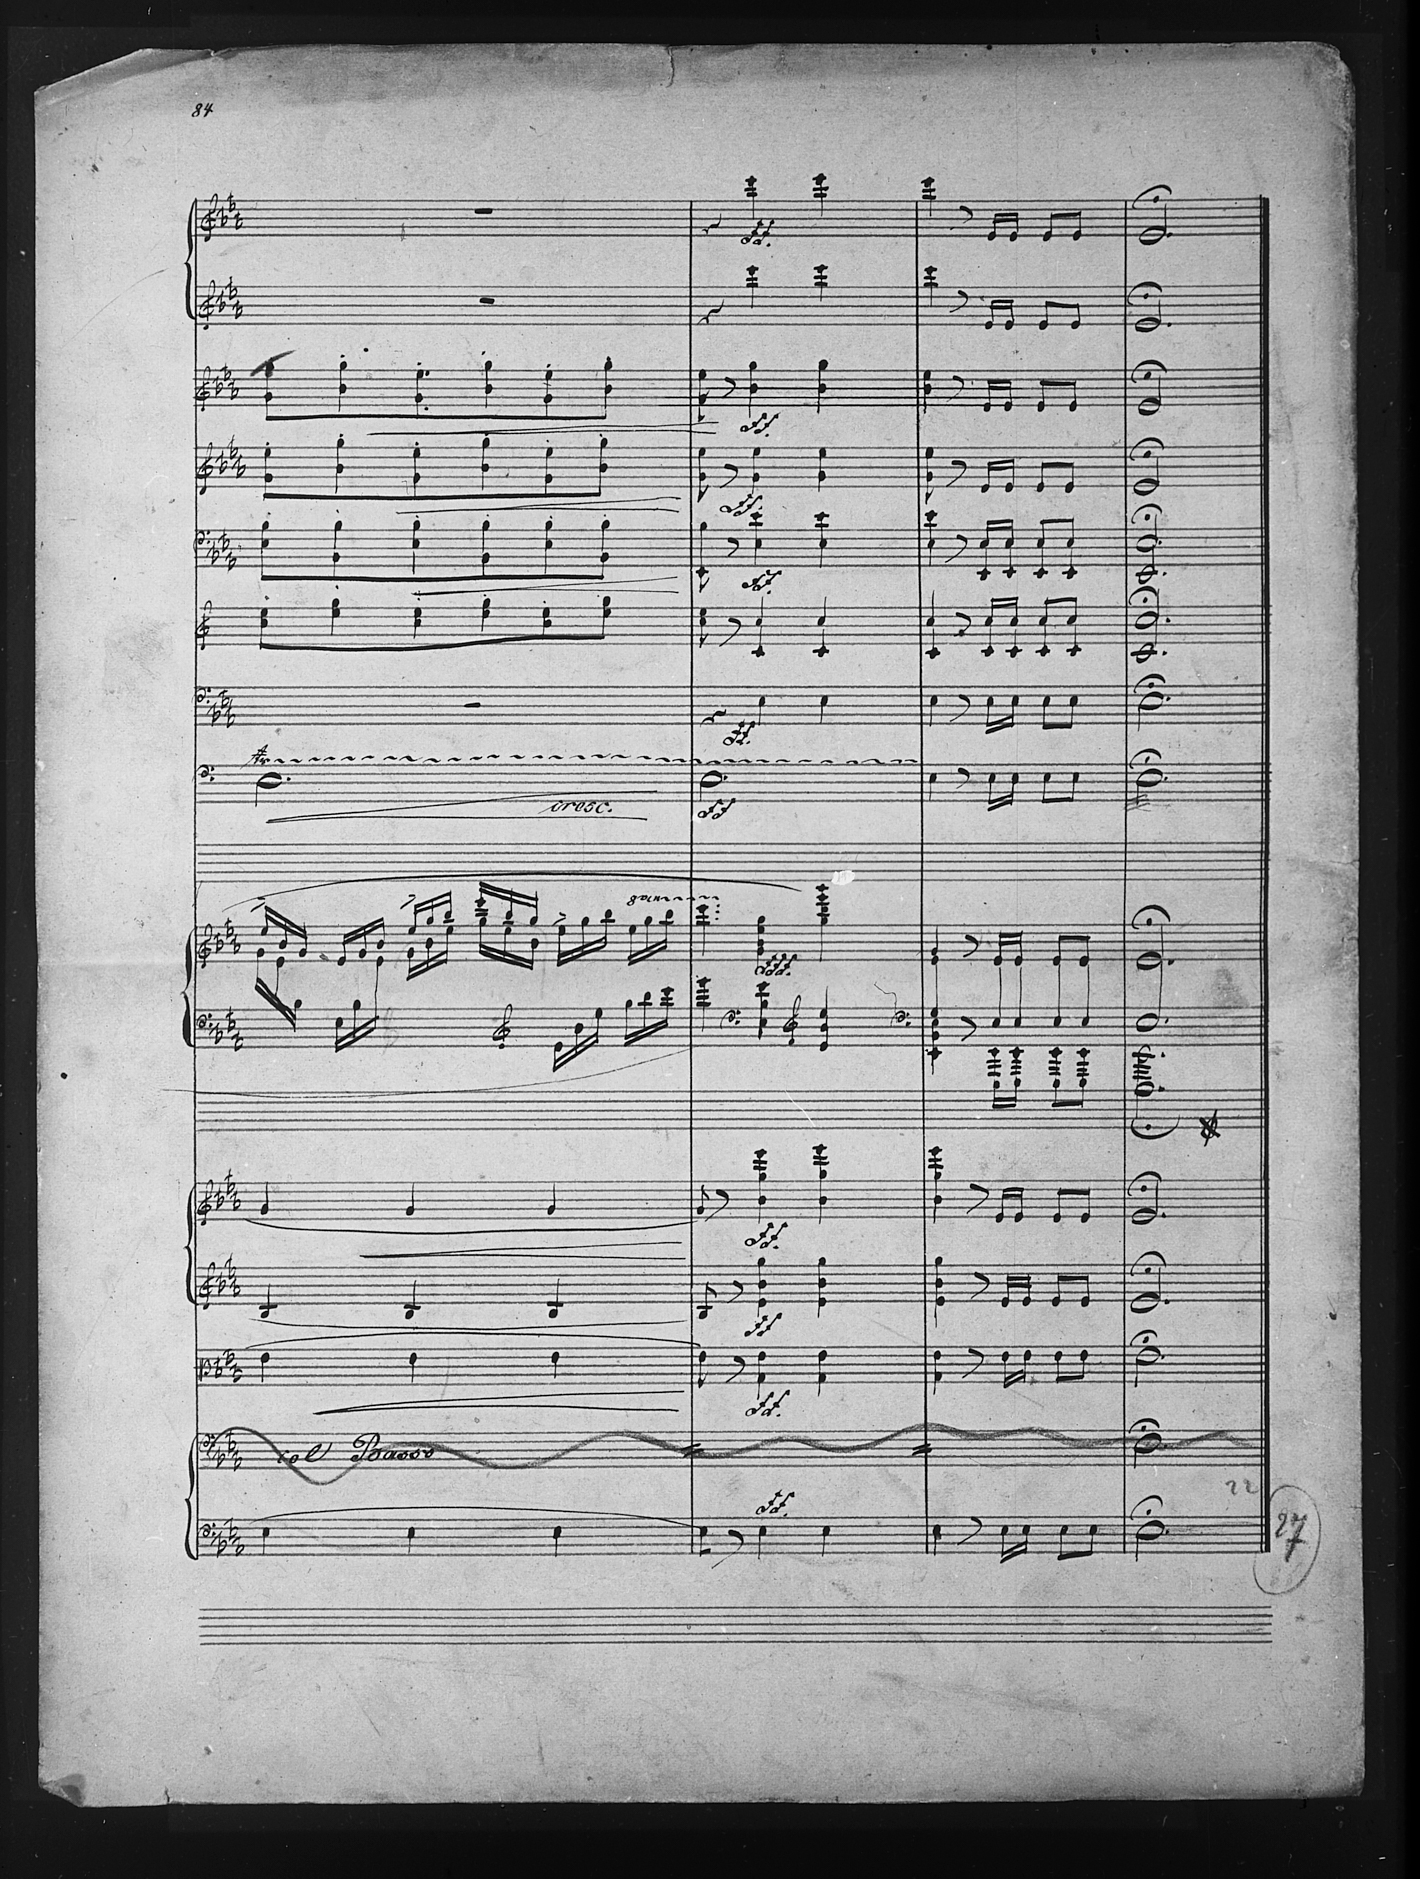 84
ff.
ff.
ff.
ff.
ff.
tr
cresc.
ff
8va
fff.
ff.
ff.
ff.
col Basso
ff.
22
27